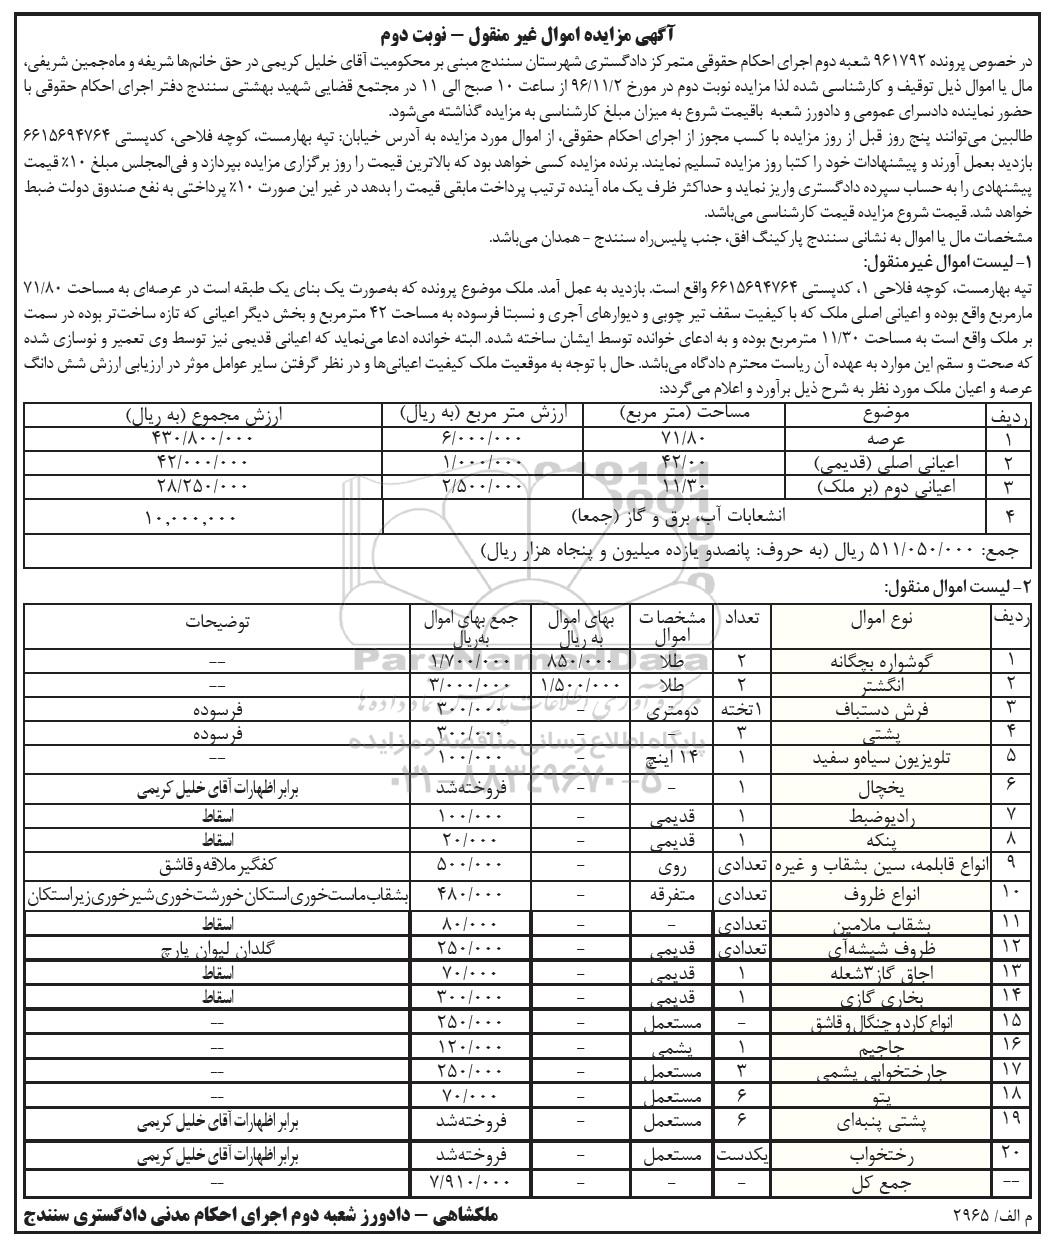 آگهی مزایده اموال غیر منقول – نوبت دوم
در خصوص پرونده ۹۶۱۷۹۲ شعبه دوم اجرای احکام حقوقی متمرکز دادگستری شهرستان سنندج مبنی بر محکومیت آقای خلیل کریمی در حق خانم‌ها شریفه و ماه‌جمین شریفی،
مال یا اموال ذیل توقیف و کارشناسی شده لذا مزایده نوبت دوم در مورخ ۹۶/۱۱/۲ از ساعت ۱۰ صبح الی ۱۱ در مجتمع قضایی شهید بهشتی سنندج دفتر اجرای احکام حقوقی با
حضور نماینده دادسرای عمومی و دادورز شعبه باقیمت شروع به میزان مبلغ کارشناسی به مزایده گذاشته می‌شود.
طالبین می‌توانند پنج روز قبل از روز مزایده با کسب مجوز از اجرای احکام حقوقی، از اموال مورد مزایده به آدرس خیابان: تپه بهارمست، کوچه فلاحی، کدپستی ۶۶۱۵۶۹۴۷۶۴
بازدید بعمل آورند و پیشنهادات خود را کتبا روز مزایده تسلیم نمایند. برنده مزایده کسی خواهد بود که بالاترین قیمت را روز برگزاری مزایده بپردازد و فی‌المجلس مبلغ ۱۰٪ قیمت
پیشنهادی را به حساب سپرده دادگستری واریز نماید و حداکثر ظرف یک ماه آینده ترتیب پرداخت مابقی قیمت را بدهد در غیر این صورت ۱۰٪ پرداختی به نفع صندوق دولت ضبط
خواهد شد. قیمت شروع مزایده قیمت کارشناسی می‌باشد.
مشخصات مال یا اموال به نشانی سنندج پارکینگ افق، جنب پلیس‌راه سنندج - همدان می‌باشد.
۱- لیست اموال غیرمنقول:
تپه بهارمست، کوچه فلاحی ۱، کدپستی ۶۶۱۵۶۹۴۷۶۴ واقع است. بازدید به عمل آمد. ملک موضوع پرونده که به‌صورت یک بنای یک طبقه است در عرصه‌ای به مساحت ۷۱/۸۰
مارمربع واقع بوده و اعیانی اصلی ملک که با کیفیت سقف تیر چوبی و دیوارهای آجری و نسبتا فرسوده به مساحت ۴۲ مترمربع و بخش دیگر اعیانی که تازه ساخت‌تر بوده در سمت
بر ملک واقع است به مساحت ۱۱/۳۰ مترمربع بوده و به ادعای خوانده توسط ایشان ساخته شده. البته خوانده ادعا می‌نماید که اعیانی قدیمی نیز توسط وی تعمیر و نوسازی شده
که صحت و سقم این موارد به عهده آن ریاست محترم دادگاه می‌باشد. حال با توجه به موقعیت ملک کیفیت اعیانی‌ها و در نظر گرفتن سایر عوامل موثر در ارزیابی ارزش شش دانگ
عرصه و اعیان ملک مورد نظر به شرح ذیل برآورد و اعلام می‌گردد:
ردیف موضوع مساحت (متر مربع) ارزش متر مربع (به ریال) ارزش مجموع (به ریال)
۱ عرصه ۷۱/۸۰ ۶/۰۰۰/۰۰۰ ۴۳۰/۸۰۰/۰۰۰
۲ اعیانی اصلی (قدیمی) ۴۲/۰۰ ۱/۰۰۰/۰۰۰ ۴۲/۰۰۰/۰۰۰
۳ اعیانی دوم (بر ملک) ۱۱/۳۰ ۲/۵۰۰/۰۰۰ ۲۸/۲۵۰/۰۰۰
۴ انشعابات آب، برق و گاز (جمعا) ۱۰,۰۰۰,۰۰۰
جمع: ۵۱۱/۰۵۰/۰۰۰ ریال (به حروف: پانصدو یازده میلیون و پنجاه هزار ریال)
۲- لیست اموال منقول:
ردیف نوع اموال تعداد مشخصات اموال بهای اموال به ریال جمع بهای اموال به‌ریال توضیحات
۱ گوشواره بچگانه ۲ طلا ۸۵۰/۰۰۰ ۱/۷۰۰/۰۰۰ --
۲ انگشتر ۲ طلا ۱/۵۰۰/۰۰۰ ۳/۰۰۰/۰۰۰ --
۳ فرش دستباف ۱تخته دومتری - ۳۰۰/۰۰۰ فرسوده
۴ پشتی ۳ - - ۳۰۰/۰۰۰ فرسوده
۵ تلویزیون سیاه‌و سفید ۱ ۱۴ اینچ - ۱۰۰/۰۰۰ --
۶ یخچال ۱ - - فروخته‌شد برابر اظهارات آقای خلیل کریمی
۷ رادیوضبط ۱ قدیمی - ۱۰۰/۰۰۰ اسقاط
۸ پنکه ۱ قدیمی - ۲۰/۰۰۰ اسقاط
۹ انواع قابلمه، سین بشقاب و غیره تعدادی روی - ۵۰۰/۰۰۰ کفگیر ملاقه و قاشق
۱۰ انواع ظروف تعدادی متفرقه - ۴۸۰/۰۰۰ بشقاب ماست‌خوری استکان خورشت‌خوری شیرخوری زیراستکان
۱۱ بشقاب ملامین تعدادی - - ۸۰/۰۰۰ اسقاط
۱۲ ظروف شیشه‌آی تعدادی قدیمی - ۲۵۰/۰۰۰ گلدان لیوان پارچ
۱۳ اجاق گاز۳شعله ۱ قدیمی - ۷۰/۰۰۰ اسقاط
۱۴ بخاری گازی ۱ قدیمی - ۳۰۰/۰۰۰ اسقاط
۱۵ انواع کارد و چنگال و قاشق - مستعمل - ۲۵۰/۰۰۰ --
۱۶ جاجیم ۱ پشمی - ۱۲۰/۰۰۰ --
۱۷ جارختخوابی پشمی ۳ مستعمل - ۲۵۰/۰۰۰ --
۱۸ پتو ۶ مستعمل - ۷۰/۰۰۰ --
۱۹ پشتی پنبه‌ای ۶ مستعمل - فروخته‌شد برابر اظهارات آقای خلیل کریمی
۲۰ رختخواب یکدست مستعمل - فروخته‌شد برابر اظهارات آقای خلیل کریمی
-- جمع کل - - - ۷/۹۱۰/۰۰۰ --
م الف/ ۲۹۶۵ ملکشاهی – دادورز شعبه دوم اجرای احکام مدنی دادگستری سنندج
ParsNamadData
مرکز فرآوری اطلاعات پارس نماد داده‌ها
پایگاه اطلاع رسانی مناقصه و مزایده
۰۲۱-۸۸۳۴۹۶۷۰-۵